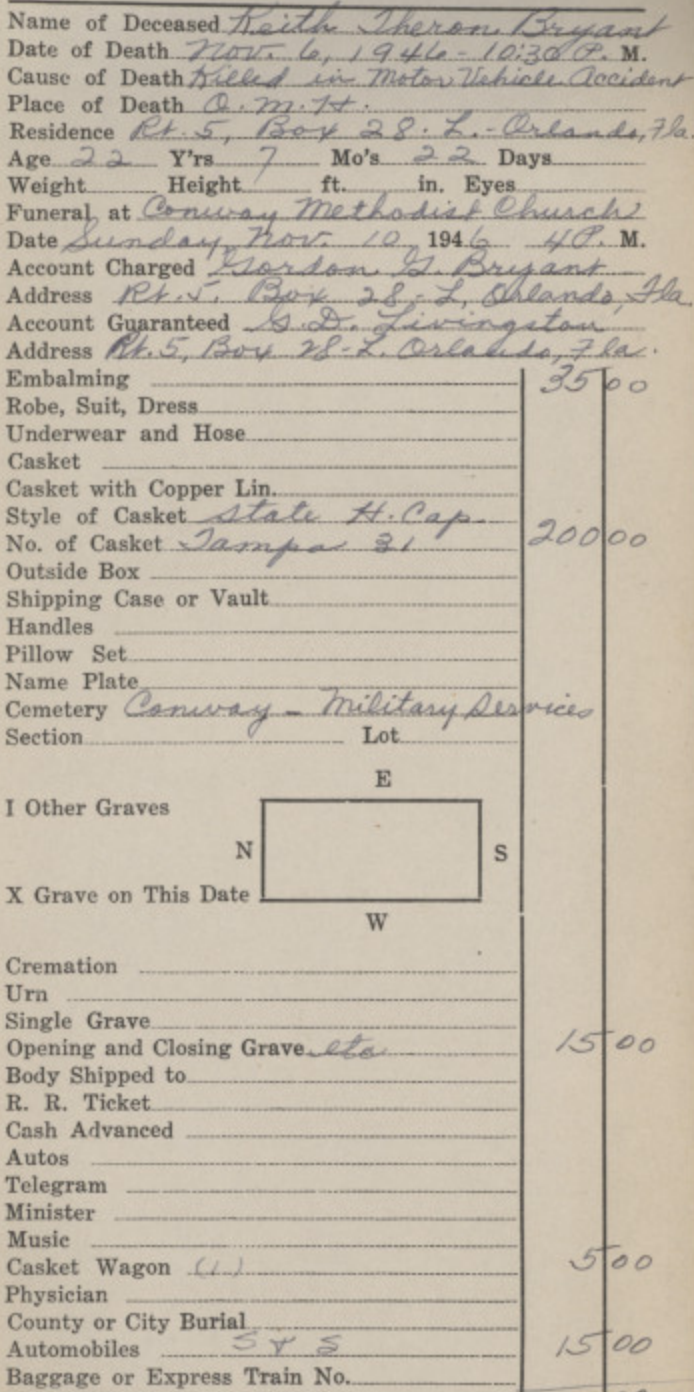 Name of Deceased Keith Theron Bryant
Date of Death Nov. 6, 1946 - 10:30 P. M.
Cause of Death Killed in Motor Vehicle Accident
Place of Death O.M.H.
Residence Rt. 5, Box 28-L.- Orlando, Fla.
Age 22 Y'rs 7 Mo's 22 Days
Weight Height ft. in. Eyes
Funeral at Conway Methodist Church
Date Sunday Nov. 10 1946 4 P. M.
Account Charged Gordon G. Bryant
Address Rt. 5. Box 28-L, Orlando, Fla
Account Guaranteed G.D. Livingston
Address Rt. 5, Box 28-L. Orlando, Fla.
Embalming 35 00
Robe, Suit, Dress
Underwear and Hose
Casket
Casket with Copper Lin.
Style of Casket State H. Cap
No. of Casket Tampa 31 200 00
Outside Box
Shipping Case or Vault
Handles
Pillow Set
Name Plate
Cemetery Conway - Military Services
Section Lot
E
I Other Graves
N S
X Grave on This Date
W
Cremation
Urn
Single Grave
Opening and Closing Grave etc 15 00
Body Shipped to
R. R. Ticket
Cash Advanced
Autos
Telegram
Minister
Music
Casket Wagon (1) 5 00
Physician
County or City Burial
Automobiles S & S 15 00
Baggage or Express Train No.